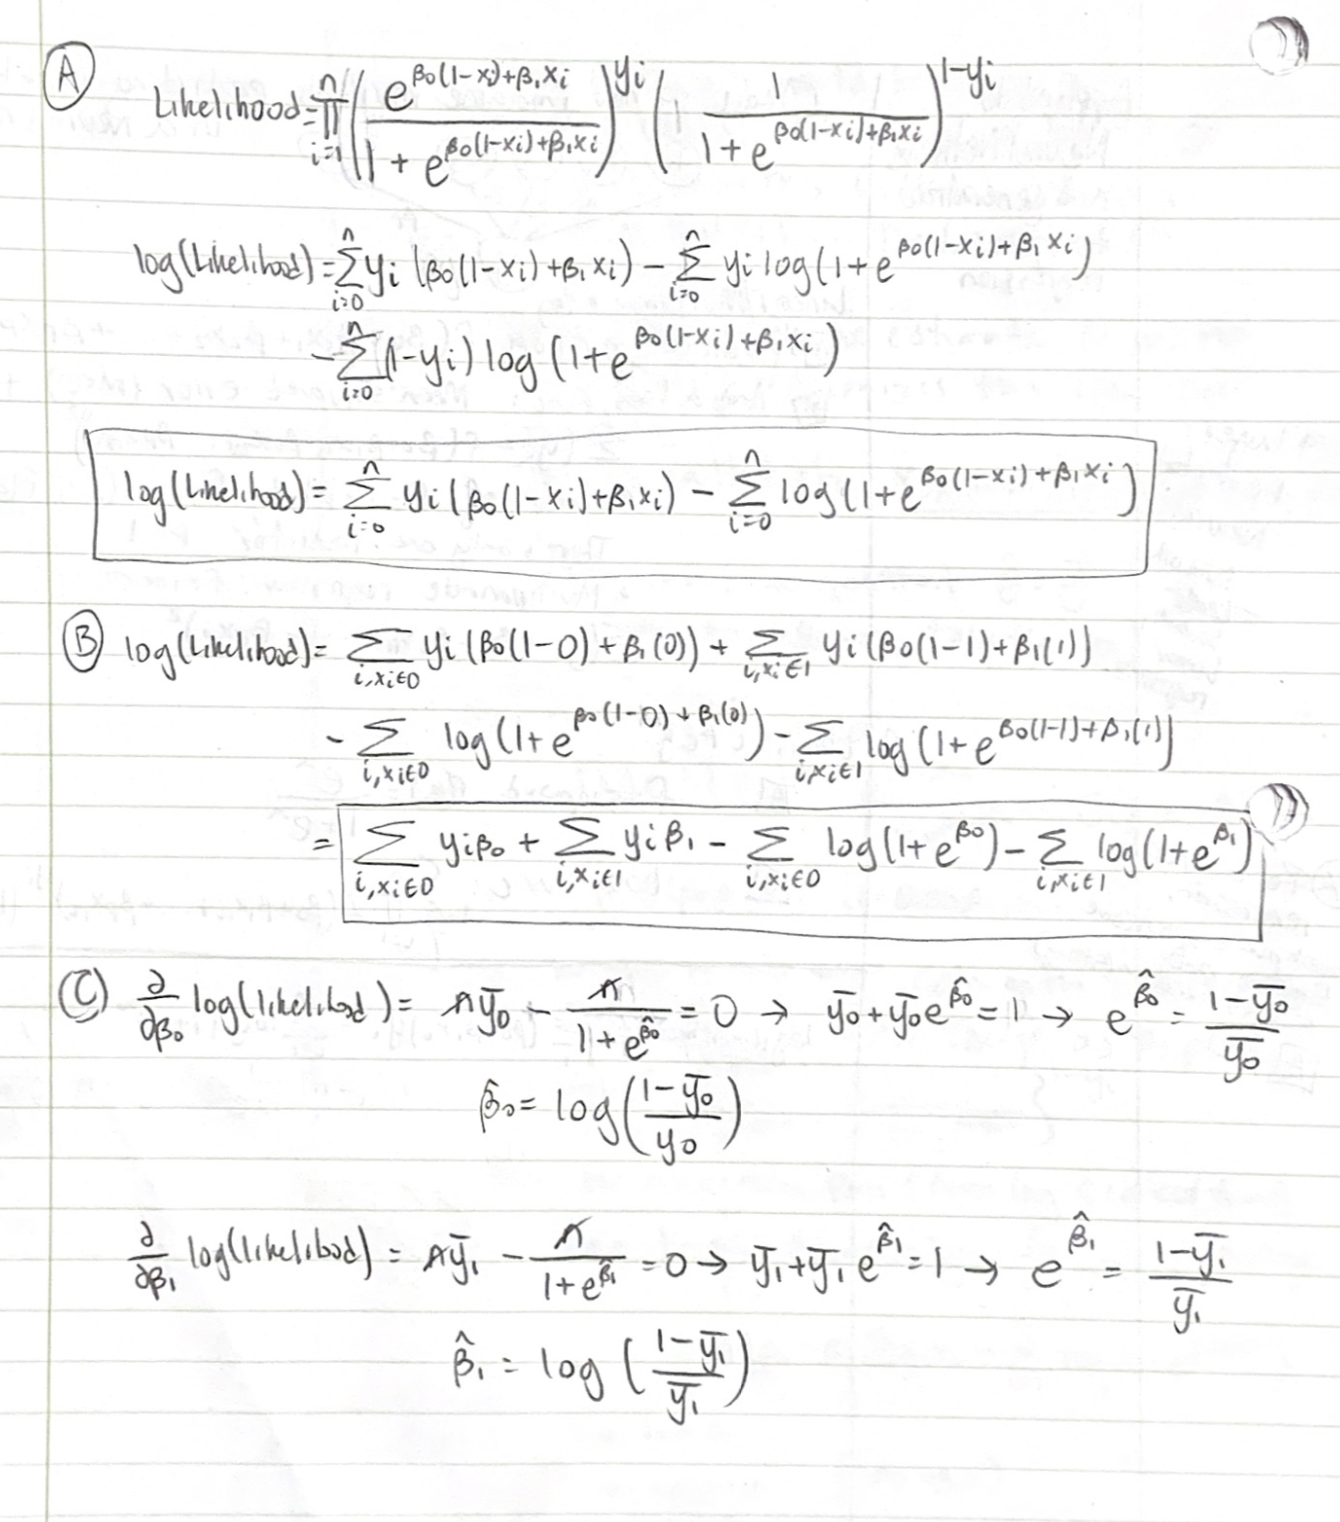 Ⓐ
Likelihood = ∏_{i=1}^{n} (e^{β0(1-xi)+β1xi} / (1+e^{β0(1-xi)+β1xi}))^{yi} (1 / (1+e^{β0(1-xi)+β1xi}))^{1-yi}
log(Likelihood) = ∑_{i=0}^{n} yi (β0(1-xi)+β1xi) - ∑_{i=0}^{n} yi log(1+e^{β0(1-xi)+β1xi})
- ∑_{i=0}^{n} (1-yi) log(1+e^{β0(1-xi)+β1xi})
log(Likelihood) = ∑_{i=0}^{n} yi (β0(1-xi)+β1xi) - ∑_{i=0}^{n} log(1+e^{β0(1-xi)+β1xi})
Ⓑ log(Likelihood) = ∑_{i,xi∈0} yi (β0(1-0)+β1(0)) + ∑_{i,xi∈1} yi (β0(1-1)+β1(1))
- ∑_{i,xi∈0} log(1+e^{β0(1-0)+β1(0)}) - ∑_{i,xi∈1} log(1+e^{β0(1-1)+β1(1)})
= ∑_{i,xi∈0} yiβ0 + ∑_{i,xi∈1} yiβ1 - ∑_{i,xi∈0} log(1+e^{β0}) - ∑_{i,xi∈1} log(1+e^{β1})
Ⓒ ∂/∂β0 log(likelihood) = nȳ0 - n/(1+e^{β̂0}) = 0 → ȳ0+ȳ0e^{β̂0} = 1 → e^{β̂0} = (1-ȳ0)/ȳ0
β̂0 = log((1-ȳ0)/y0)
∂/∂β1 log(likelihood) = nȳ1 - n/(1+e^{β̂1}) = 0 → ȳ1+ȳ1e^{β̂1} = 1 → e^{β̂1} = (1-ȳ1)/ȳ1
β̂1 = log((1-ȳ1)/ȳ1)